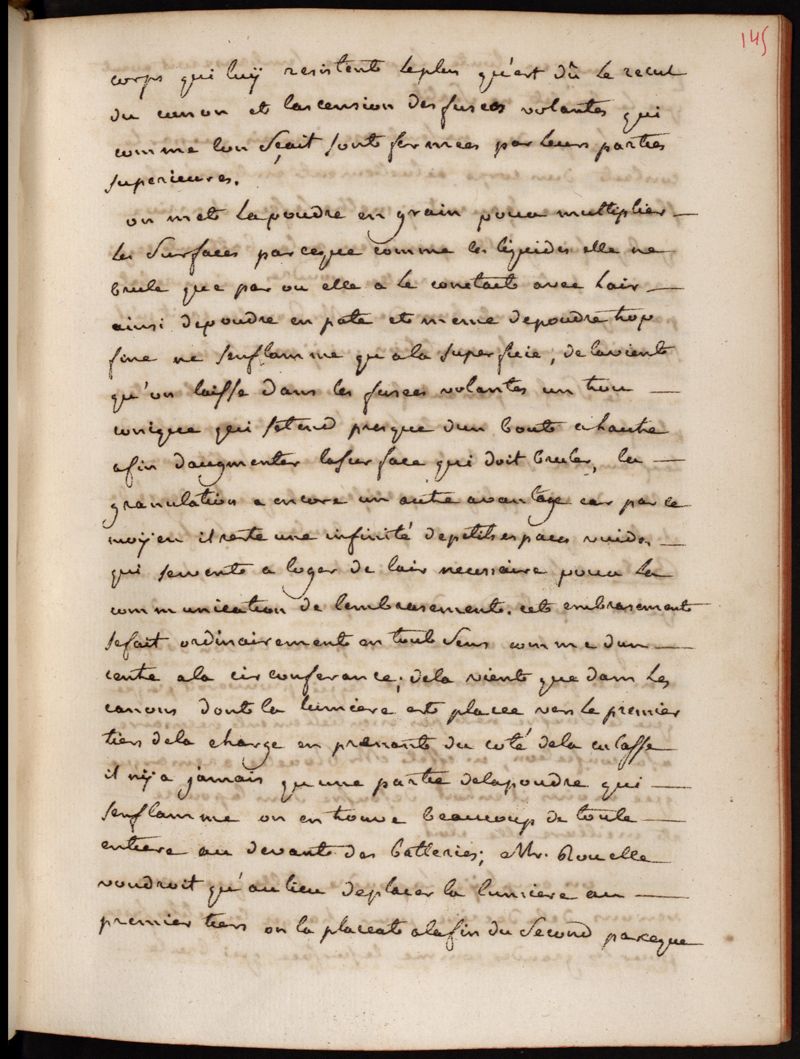 145
corps qui luÿ resistent le plus qu'est dû le recul
du canon et lascension des fusees volantes qui
comme lon sçait sont fermees par leurs parties
superieures.
on met la poudre en grain pour multiplier
les surfaces parceque comme les liquides elle ne
brule que par ou elle a le contact avec lair
ainsi de poudre en pate et meme de poudre trop
fine ne senflamme qu a la superficie, de la vient
qu'on laisse dans les fusees volantes un trou
conique qui setend presque dun bout a lautre
afin daugmenter la surface qui doit bruler, la
granulation a encore un autre avantage car par ce
moÿen il reste une infinité de petits espaces vuides
qui servent a loger de lair necessaire pour la
communication de lembrasement. cet embrasement
se fait ordinairement en tout sens comme dun
centre a la circonferance; de la vient que dans les
canons dont la lumiere est placee vers le premier
tiers de la charge en prenant du coté de la culasse
il nÿ a jamais qu une partie de la poudre qui
senflamme on en trouve beaucoup de toute
entiere au devant des batteries; Mr. Rouelle
voudroit qu'au lieu de placer la lumiere au
premier tiers on la placeat a la fin du second parceque